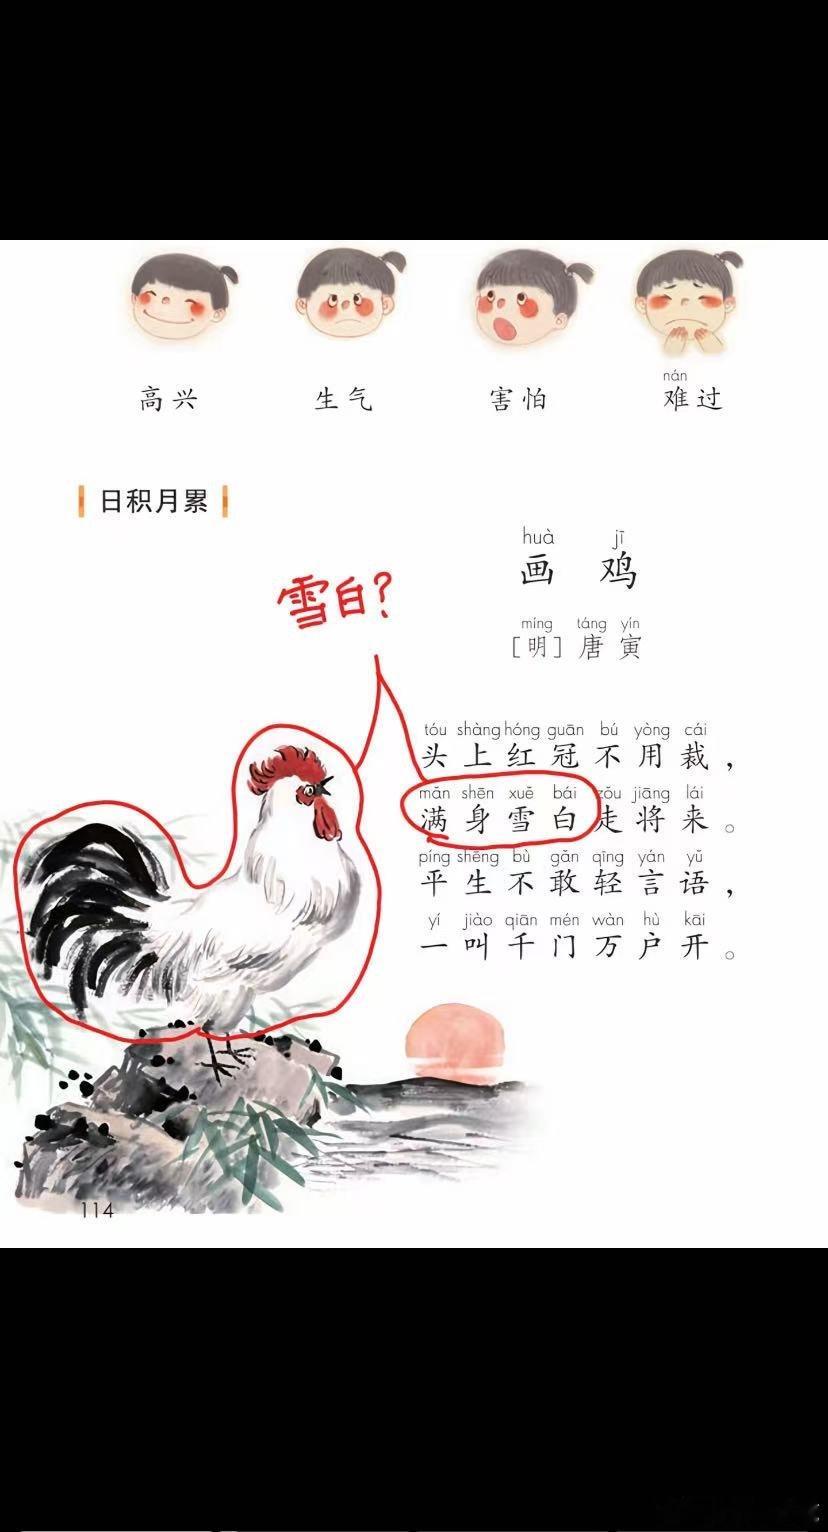 高兴 生气 害怕 nán
难过
日积月累
huà jī
画 鸡
雪白？
míng táng yín
[明] 唐 寅
tóu shàng hóng guān bú yòng cái
头上红冠不用裁，
mǎn shēn xuě bái zǒu jiāng lái
满身雪白走将来。
píng shēng bù gǎn qīng yán yǔ
平生不敢轻言语，
yí jiào qiān mén wàn hù kāi
一叫千门万户开。
114